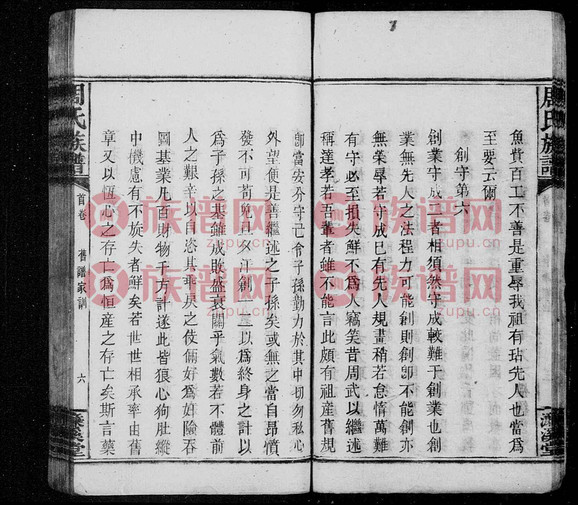 周氏族譜
魚貫百工不善是重辱我祖有玷先人也當爲
至要云爾
創守第六
創業守成二者相須然守成較難于創業也創
業無先人之法程力可能創則創即不能創亦
無榮辱若守成已有先人規畫稍若怠惰萬難
有守必至損失鮮不爲人竊笑昔周武以繼述
稱達孝若吾輩者雖不能言此頗有祖產舊規
卽當安分守己令子孫勤力於其中切勿私心
外望便是善繼述之子孫矣或無之當自昂憤
發不可苟免日夕汗創一二以爲終身之計以
爲子孫之基雖成敗盛衰關乎氣數若不體前
人之艱辛以自恣其乖戾之伎倆好爲奸險吞
圖基業凡百財物千方計遂此皆狼心狗肚縱
中機處有不旋失者鮮矣若世世相承率由舊
章又以恆心之存亡爲恒產之存亡矣斯言藥
周氏族譜
首卷
舊譜家訓
六
濂溪堂
族谱网
zupu.cn